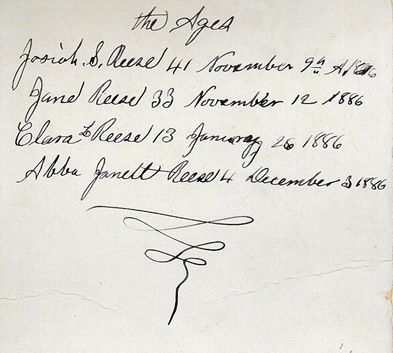 the Ages
Josiah. S. Reese 41 November 9th A 1886
Jane Reese 33 November 12 1886
Clara Reese 13 January 26 1886
Abba Janett Reese 4 December 3 1886